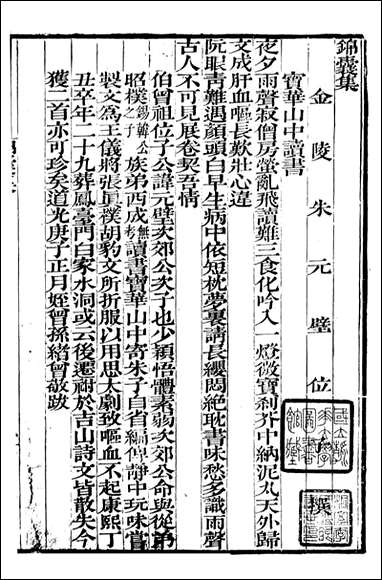 錦囊集
金陵朱元璧位子撰
寶華山中讀書
夜夕雨聲寂僧房螢亂飛讀難三食化吟入一燈微寶剎芥中納泥丸天外歸
文成肝血嘔長歎壯心違
阮眼青難遇顏頭白早生病中依短枕夢裏請長纓悶絕耽書味愁多識雨聲
古人不可見展卷契吾情
伯曾祖位子公諱元璧次郊公次子也少穎悟體素弱次郊公命與從弟
昭樸錫韓公之子族弟西成無考讀書寶華山中寄朱子自省編俾靜中玩味嘗
製文爲王儀將張眞樸胡豹文所折服以用思太劇致嘔血不起康熙丁
丑卒年二十九葬鳳臺門白家水洞或云後遷祔於吉山詩文皆散失今
獲二首亦可珍矣道光庚子正月姪曾孫緒曾敬跋